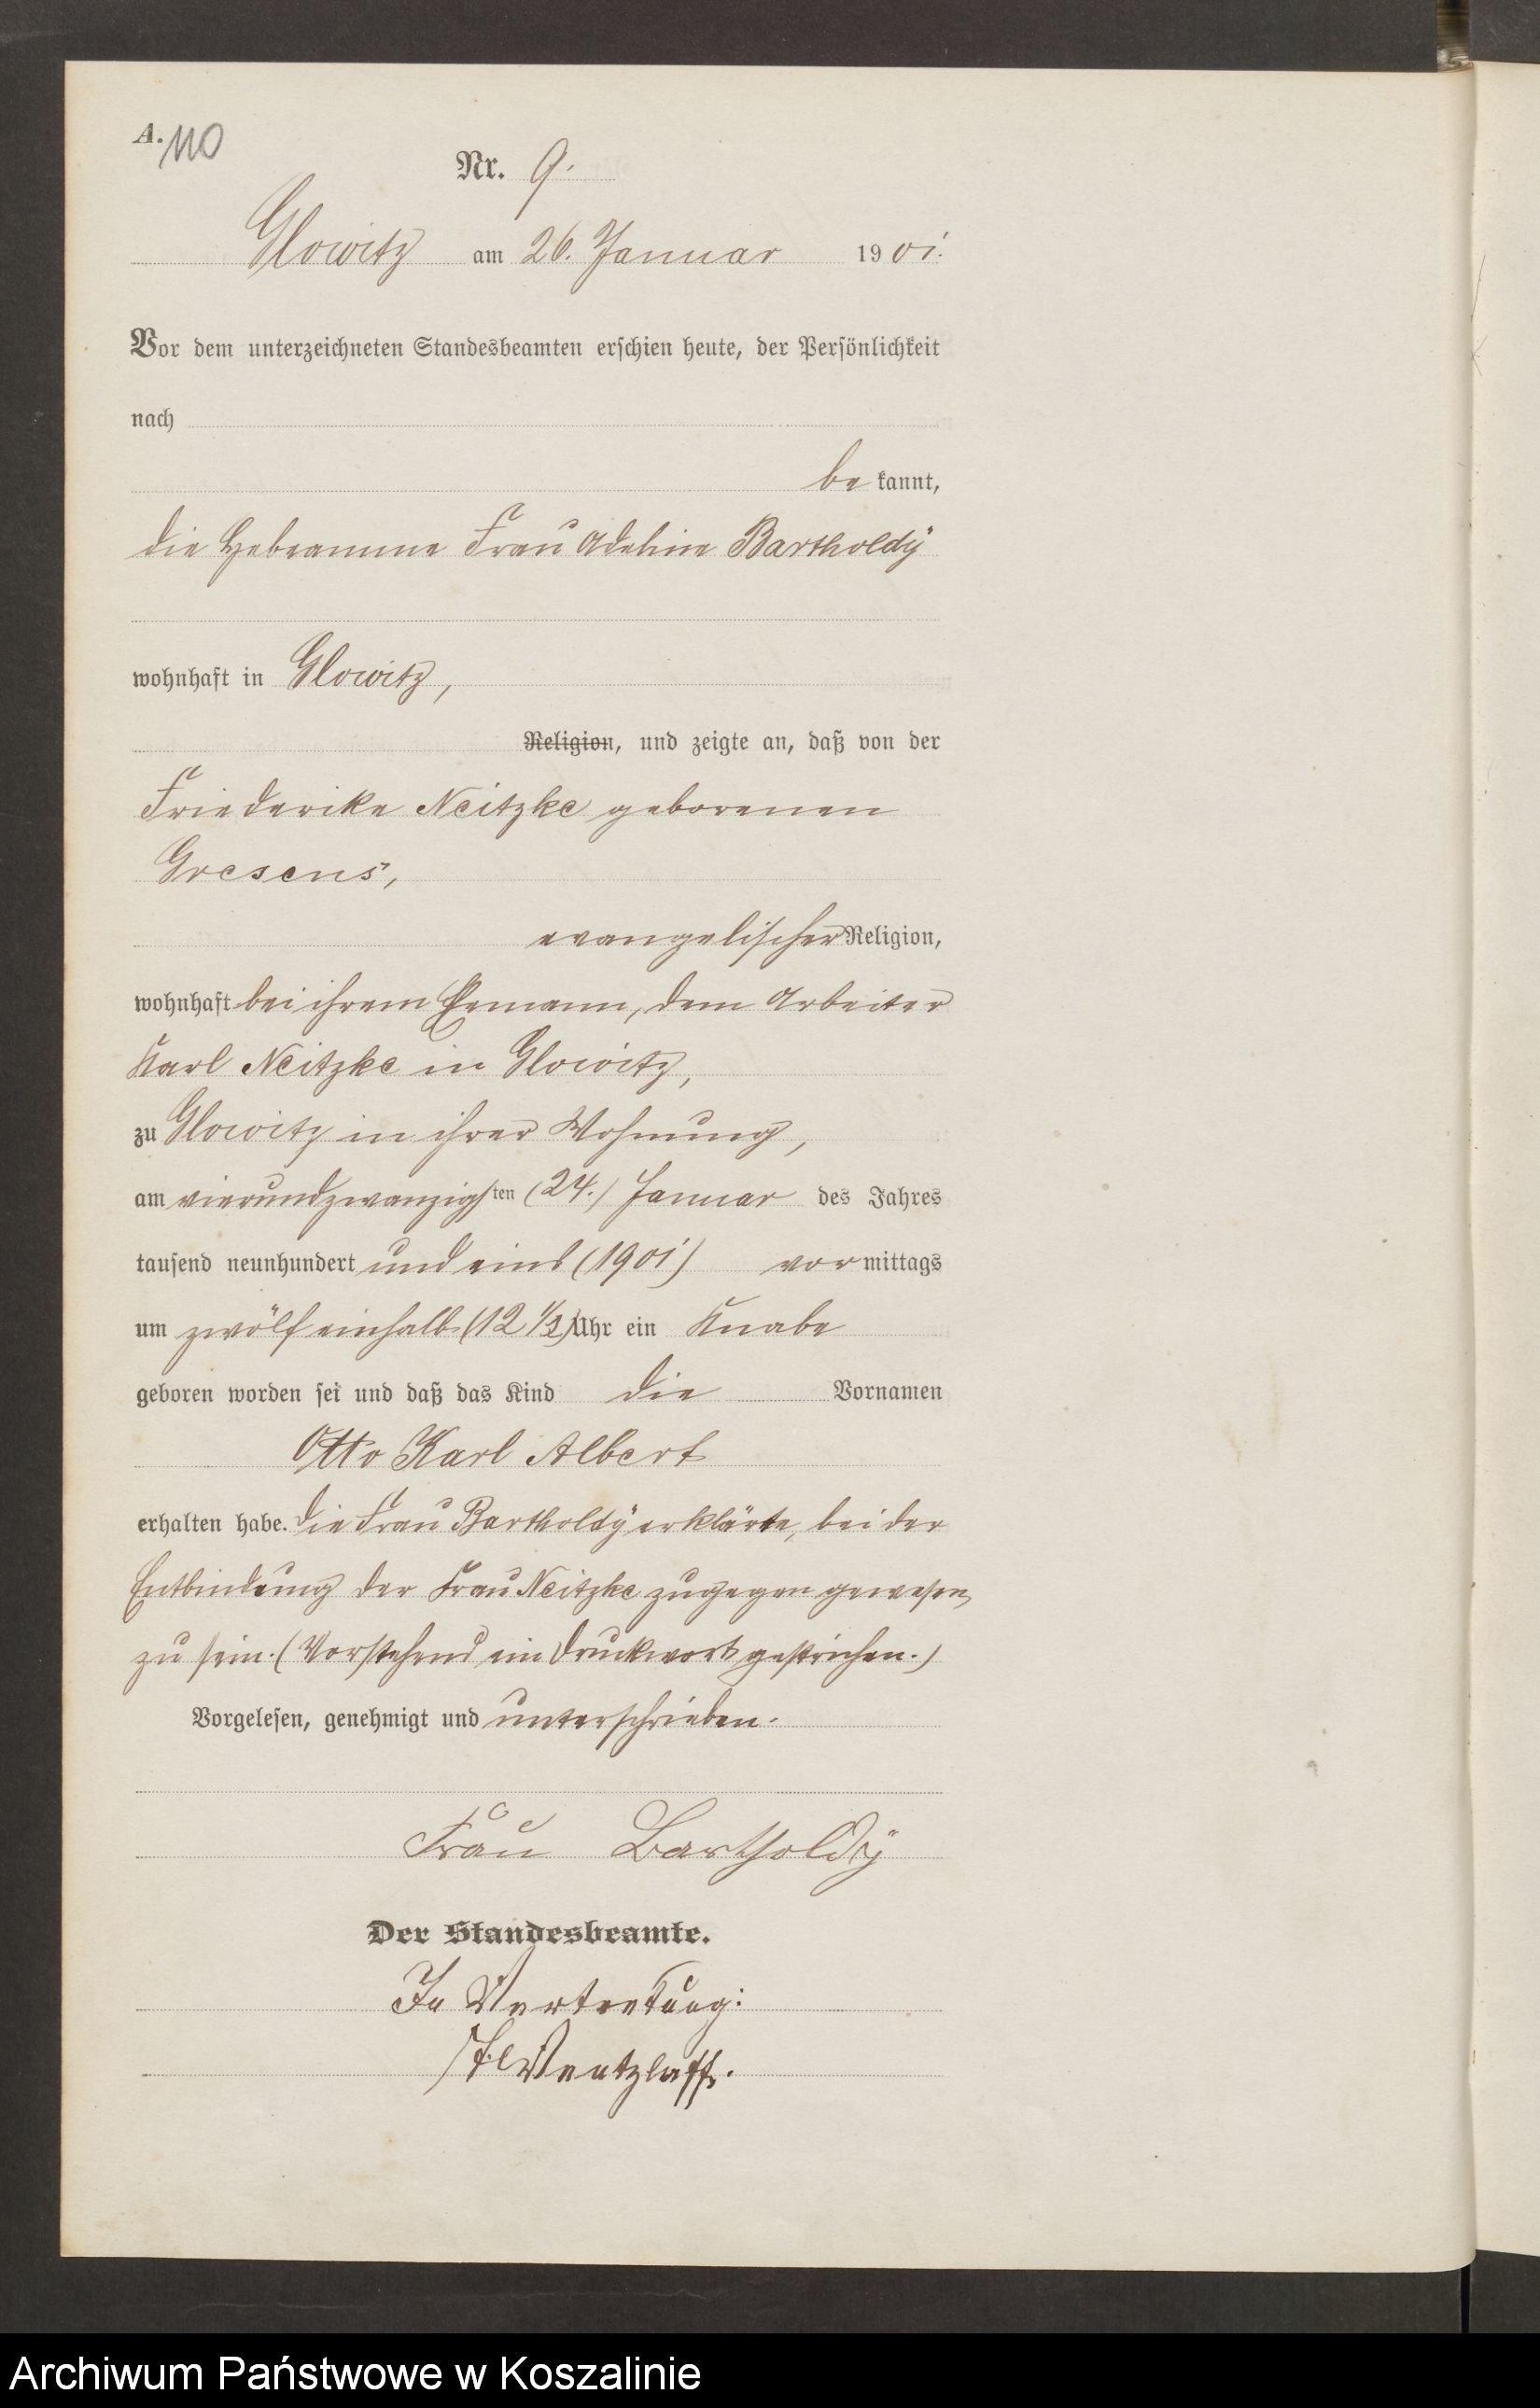 A. 110
Nr. 9.
Glowitz am 26. Januar 1901.
Vor dem unterzeichneten Standesbeamten erschien heute, der Persönlichkeit
nach
bekannt,
die Hebeamme Frau Adeline Bartholdÿ
wohnhaft in Glowitz,
Religion, und zeigte an, daß von der
Friederike Neitzke geborenen
Gresens,
evangelischer Religion,
wohnhaft bei ihrem Ehemann, dem Arbeiter
Karl Neitzke in Glowitz,
zu Glowitz in ihrer Wohnung,
am vierundzwanzigsten (24.) Januar des Jahres
tausend neunhundert und eins (1901) vormittags
um zwölf einhalb (12 1/2) Uhr ein Knabe
geboren worden sei und daß das Kind die Vornamen
Otto Karl Albert
erhalten habe. Die Frau Bartholdÿ erklärte, bei der
Entbindung der Frau Neitzke zugegen gewesen
zu sein. (Vorstehend ein Druckwort gestrichen.)
Vorgelesen, genehmigt und unterschrieben.
Frau Bartholdÿ
Der Standesbeamte.
In Vertretung:
Wentzlaff.
Archiwum Państwowe w Koszalinie